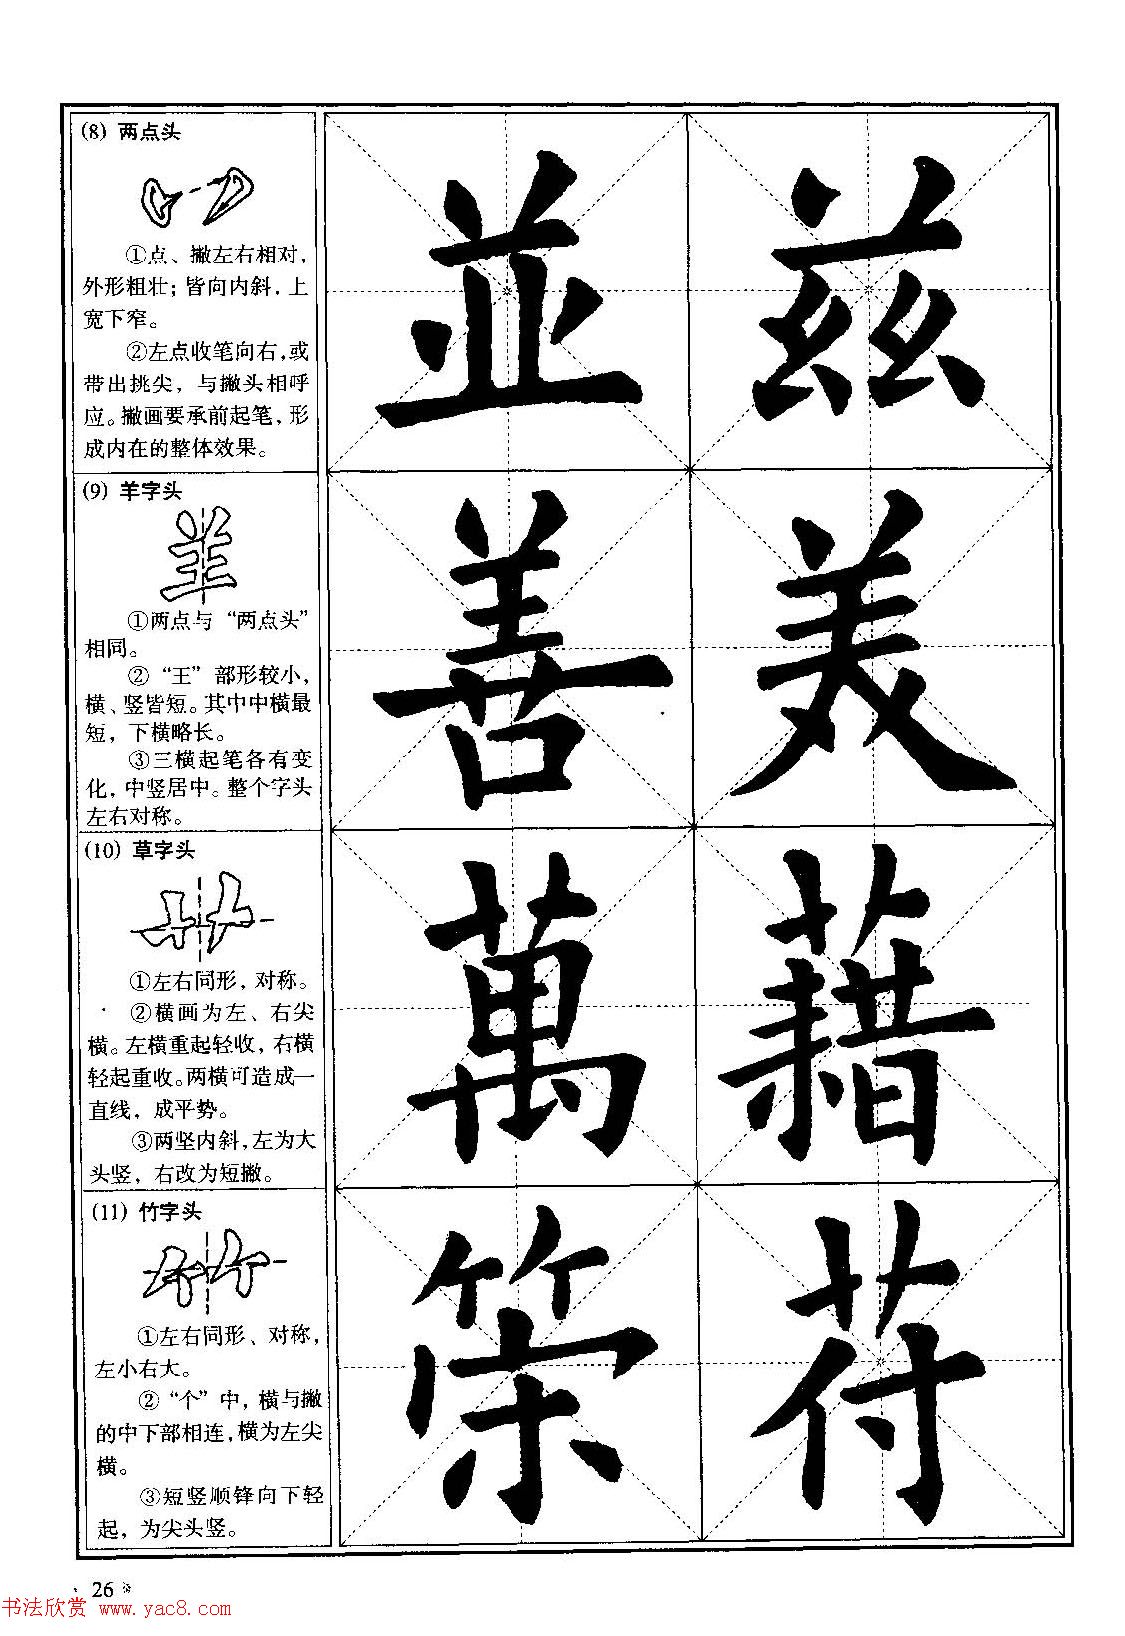 (8) 两点头
①点、撇左右相对，
外形粗壮；皆向内斜，上
宽下窄。
②左点收笔向右，或
带出挑尖，与撇头相呼
应。撇画要承前起笔，形
成内在的整体效果。
並 兹
(9) 羊字头
①两点与“两点头”
相同。
②“王”部形较小，
横、竖皆短。其中中横最
短，下横略长。
③三横起笔各有变
化，中竖居中。整个字头
左右对称。
善 美
(10) 草字头
①左右同形，对称。
②横画为左、右尖
横。左横重起轻收，右横
轻起重收。两横可造成一
直线，成平势。
③两坚内斜，左为大
头竖，右改为短撇。
萬 藉
(11) 竹字头
①左右同形、对称，
左小右大。
②“个”中，横与撇
的中下部相连，横为左尖
横。
③短竖顺锋向下轻
起，为尖头竖。
苻
26
书法欣赏 www.yac8.com